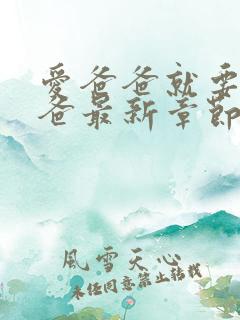 愛爸爸就要
爸最新章節
風雪天心
未经同意禁止转载